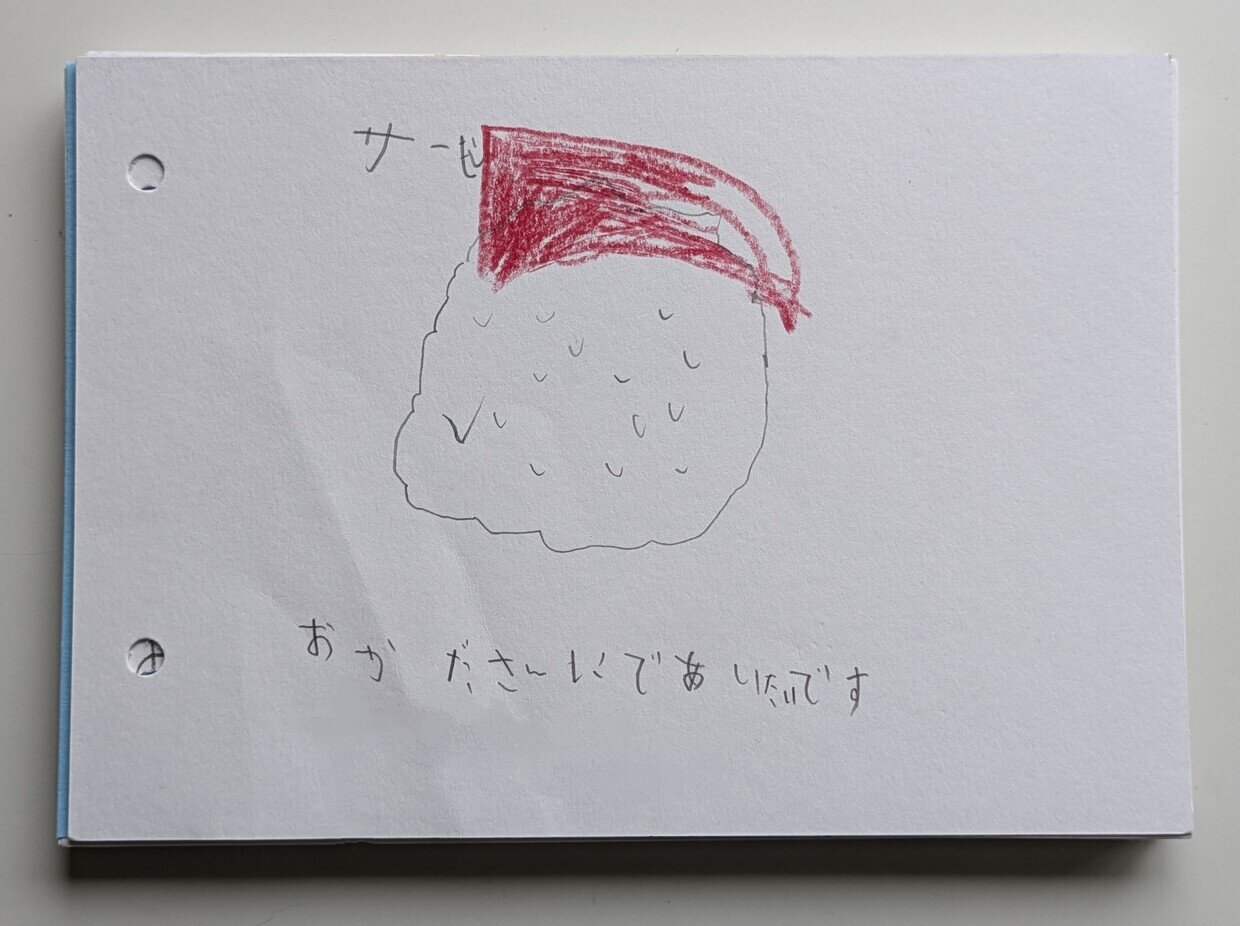 サービ
おかださんにであいたいです